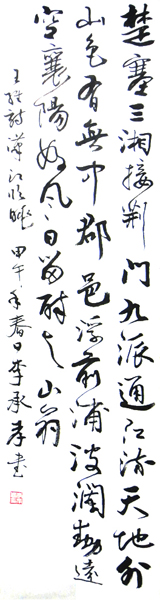 楚塞三湘接荆门九派通江流天地外
山色有無中郡邑浮前浦波澜動遠
空襄陽好风日留醉与山翁
王维詩漢江临眺 甲午年春日李承孝書